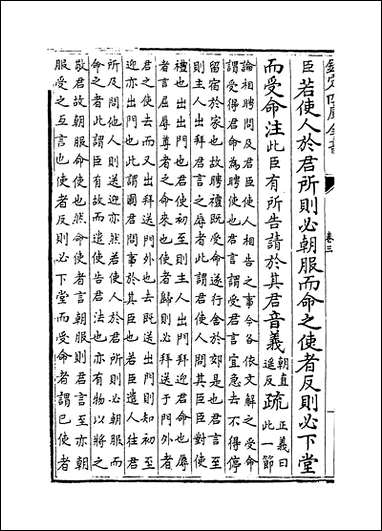 欽定四庫全書 卷三
臣若使人於君所則必朝服而命之使者反則必下堂
而受命注此臣有所告請於其君音義朝直遥反疏正義曰此一節
論相聘問及君臣使人相告之事今各依文解之受命
謂受得君命為聘使也君言謂受君言宜急去不得停
留宿於家也故聘禮既受命遂行舍於郊是也君言至
則主人出拜君言之辱者此謂君使人問其臣臣對使
禮也出出門也君使初至則主人出門拜迎君命也辱
者言屈辱尊者之命來也使者歸則必拜送於門外者
君之使去而又出拜送門外也去既送出門則知初至
迎亦出門也此謂國君問事於其臣也若臣遣人往君
所及問他人則送迎亦然若使人於君所則必朝服而
命之者此謂臣有故而遣使告君法也亦有物以將之
敬君故朝服命使也然命使者言朝服則君言至亦朝
服受之互言也使者反則必下堂而受命者謂已使者